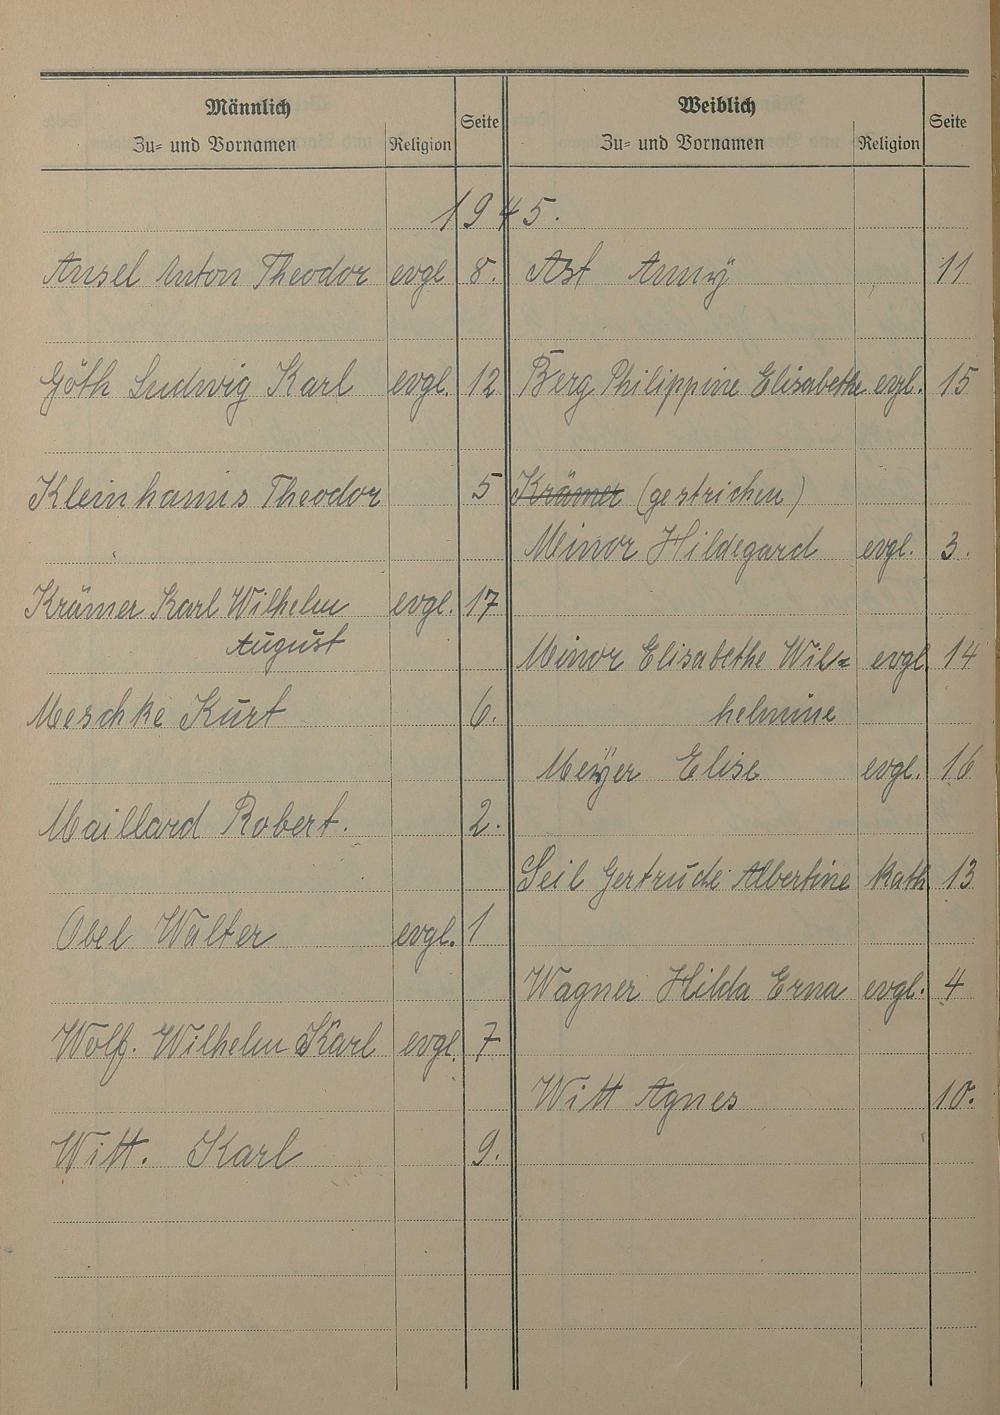 Männlich
Zu= und Vornamen
Religion
Seite
Weiblich
Zu= und Vornamen
Religion
Seite
1945.
Ansel Anton Theodor evgl 8.
Ast Anny 11
Göth Ludwig Karl evgl. 12
Berg Philippine Elisabethe evgl. 15
Kleinhanns Theodor 5
Krämer (gestrichen)
Minor Hildegard evgl. 3.
Krämer Karl Wilhelm evgl. 17
August
Minor Elisabethe Wil= evgl 14
Meschke Kurt 6.
helmine
Meyer Elise evgl. 16
Maillard Robert. 2.
Seil Gertrude Albertine kath 13
Obel Walter evgl. 1
Wagner Hilda Erna evgl. 4
Wolf. Wilhelm Karl evgl. 7
Witt Agnes 10.
Witt. Karl 9.